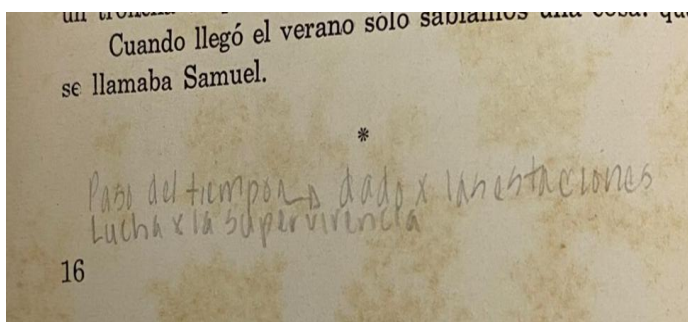 Cuando llegó el verano sólo sabíamos una cosa: que
se llamaba Samuel.
*
Paso del tiempo → dado x las estaciones
Lucha x la supervivencia
16